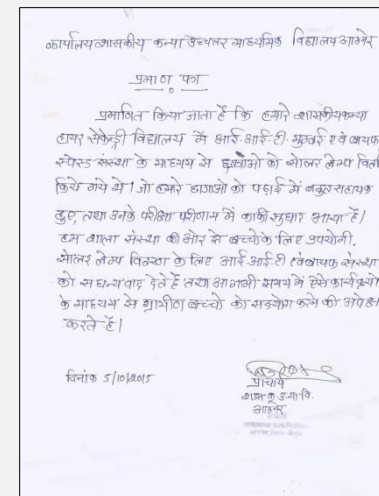 कार्यालय शासकीय कन्या उच्चतर माध्यमिक विद्यालय आमेर
प्रमाण पत्र
प्रमाणित किया जाता है कि हमारे शासकीय कन्या
हायर सेकेन्ड्री विद्यालय में आई.आई.टी. मुम्बई एवं बायफ
संस्था के माध्यम से छात्राओ को सोलर लेम्प वितरित
किये गये थे। जो हमारे छात्राओ को पढ़ाई में बहुत सहायक
हुए तथा उनके परीक्षा परीणाम में काफी सुधार आया है।
हम शाला संस्था की ओर से बच्चो के लिए उपयोगी,
सोलर लेम्प वितरण के लिए आई आई टी एवं बायफ संस्था
को सधन्यवाद देते है तथा आगामी समय में ऐसे कार्यक्रमो
के माध्यम से ग्रामीण बच्चो को सहयोग करने की अपेक्षा
करते है।
दिनांक 5/10/2015
प्राचार्य
शास. क. उ. मा. वि.